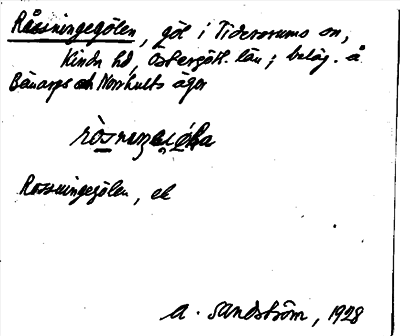 Råssningegölen, göl i Tidersrums sn,
Kinda hd, Östergötl. län; beläg. å
Bånarps och Norrhults ägor
Rossningegölen, ek
A. Sandström, 1928